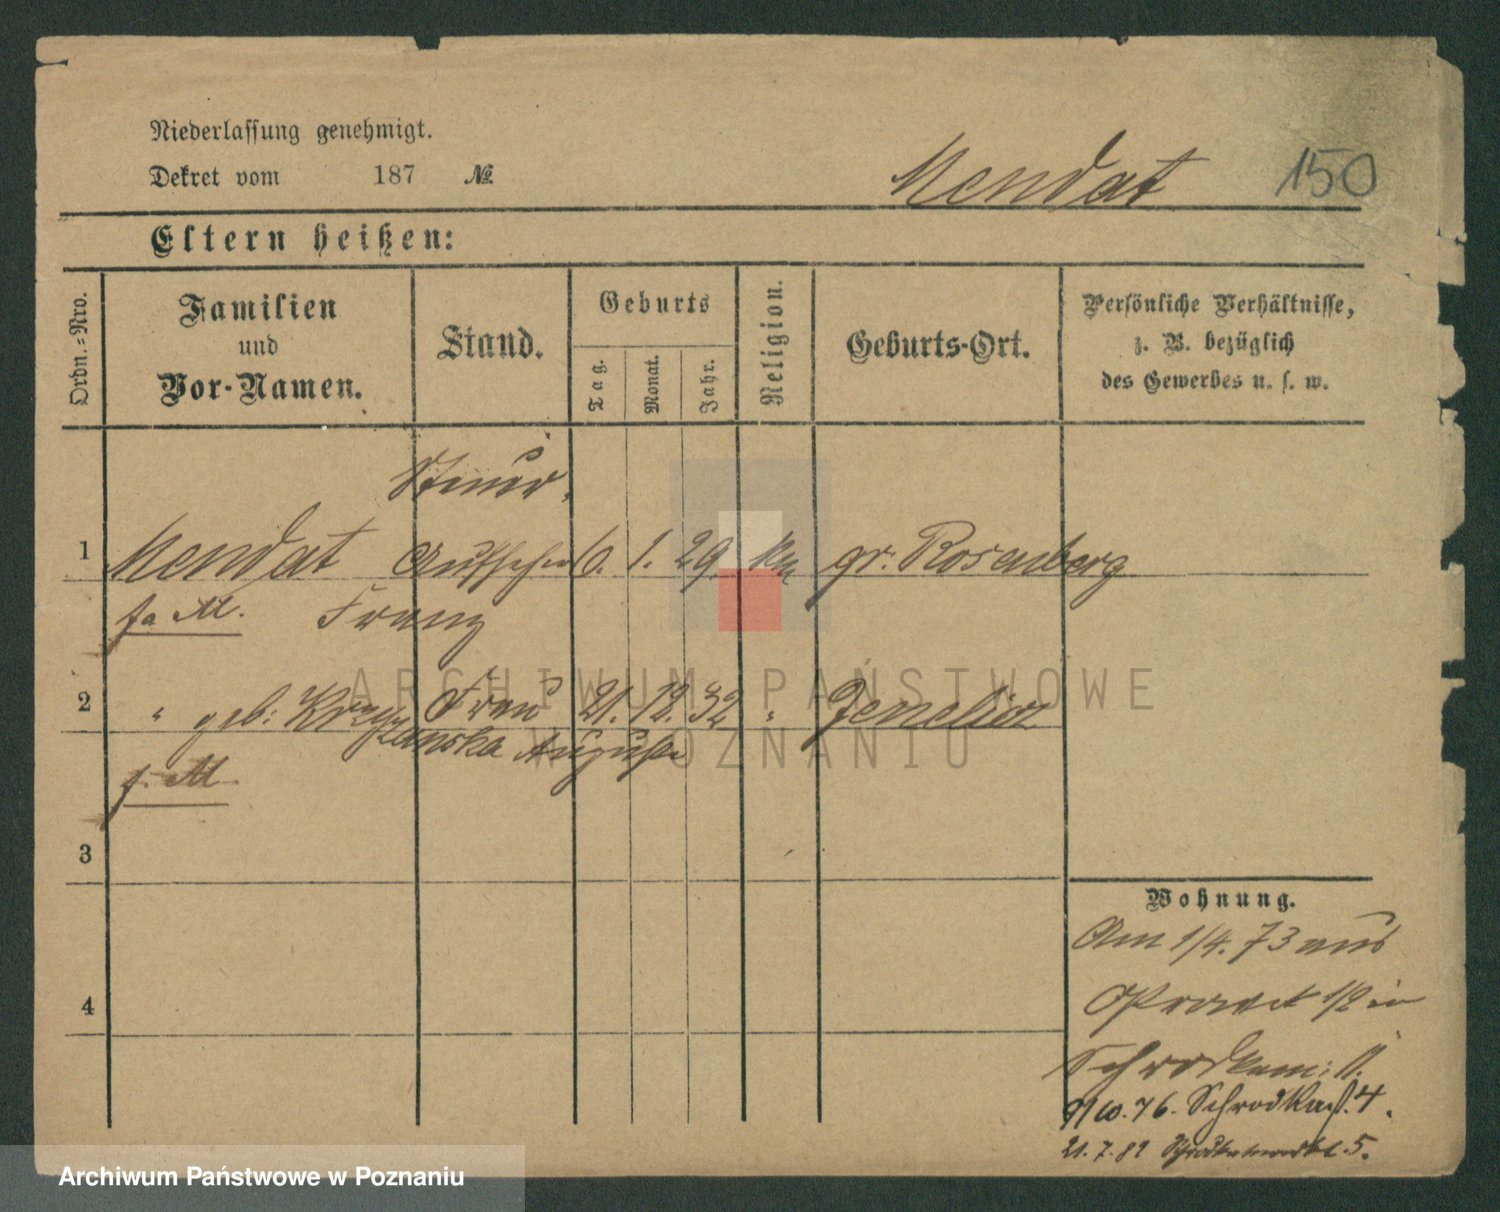 Niederlassung genehmigt.
Dekret vom 187 №
Mendat 150
Eltern heißen:
Ordn.-Nro.
Familien
und
Vor-Namen.
Stand.
Geburts
Tag.
Monat.
Jahr.
Religion.
Geburts-Ort.
Persönliche Verhältnisse,
z. B. bezüglich
des Gewerbes u. s. w.
Steuer
1 Mendat Aufseher 6. 1. 29. gr. Rosenberg
fa. M. Franz
2 " geb. Krzyżanska Frau 21. 12. 32 "
Auguste
f. M.
3
4
Wohnung.
Am 1/4. 73 aus
1/2 in
Schrodkam: 11.
9/10. 76. Schrodka 4.
21. 7. 89 5.
ARCHIWUM PAŃSTWOWE
W POZNANIU
Archiwum Państwowe w Poznaniu